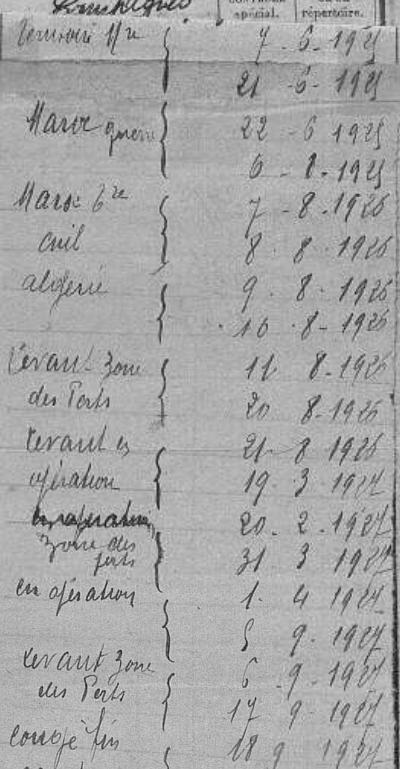 spécial. répertoire.
7 - 6 - 1925
21 - 6 - 1925
Maroc guerre 22 - 6 1925
6 - 8 - 1925
Maroc 7 - 8 - 1926
civil 8 - 8 - 1926
algérie 9 - 8 - 1926
10 - 8 - 1926
Levant Zone 11 8 - 1926
des Ports 20 8 - 1926
Levant en 21 - 8 1926
opération 19 - 3 - 1927
20 - 2 - 1927
Zone des
ports 31 3 1927
en opération 1 - 4 1927
5 9 - 1927
Levant Zone 6 - 9 - 1927
des Ports 17 9 - 1927
congé fin 18 9 1927